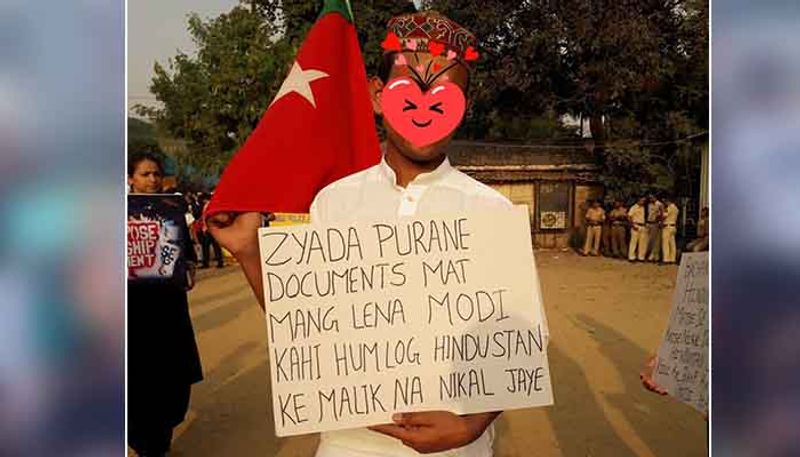 ZYADA PURANE
DOCUMENTS MAT
MANG LENA MODI
KAHI HUM LOG HINDUSTAN
KE MALIK NA NIKAL JAYE